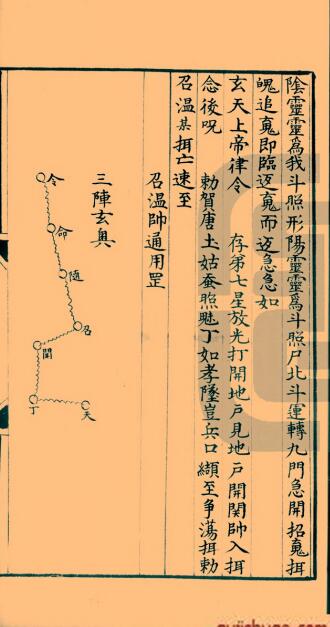 陰靈靈為我斗照形陽靈靈為斗照尸北斗運轉九門急開招䰟拜
魄追䰟即臨返䰟而返急急如
玄天上帝律令　存第七星放光打開地戶見地戶開関帥入拜
念後呪　勅賀唐土姑蚕照魅丁如孝墜豈兵口纈至争蕩拜勅
召温某拜亡速至
召温帥通用罡
三陣玄奥
令
命
随
召
閛
丁
天